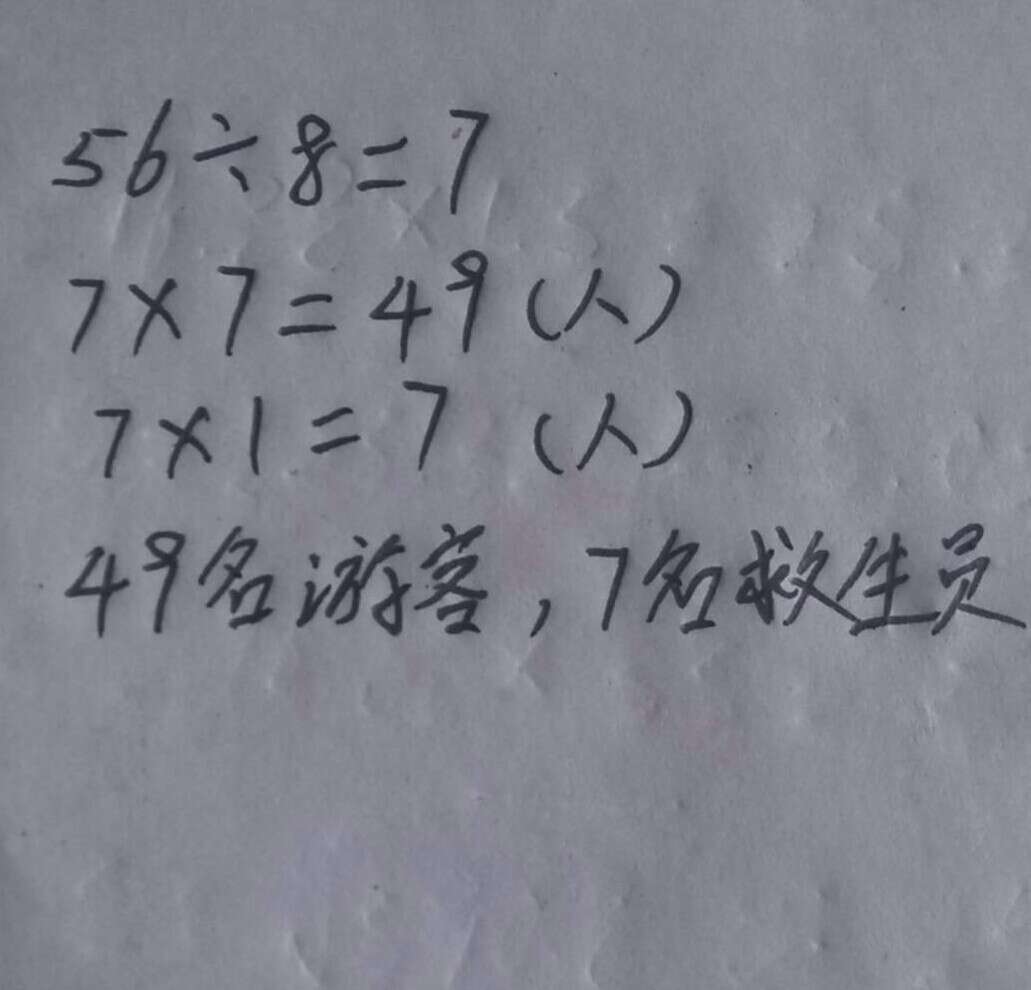 56÷8=7
7×7=49(人)
7×1=7(人)
49名游客,7名救生员